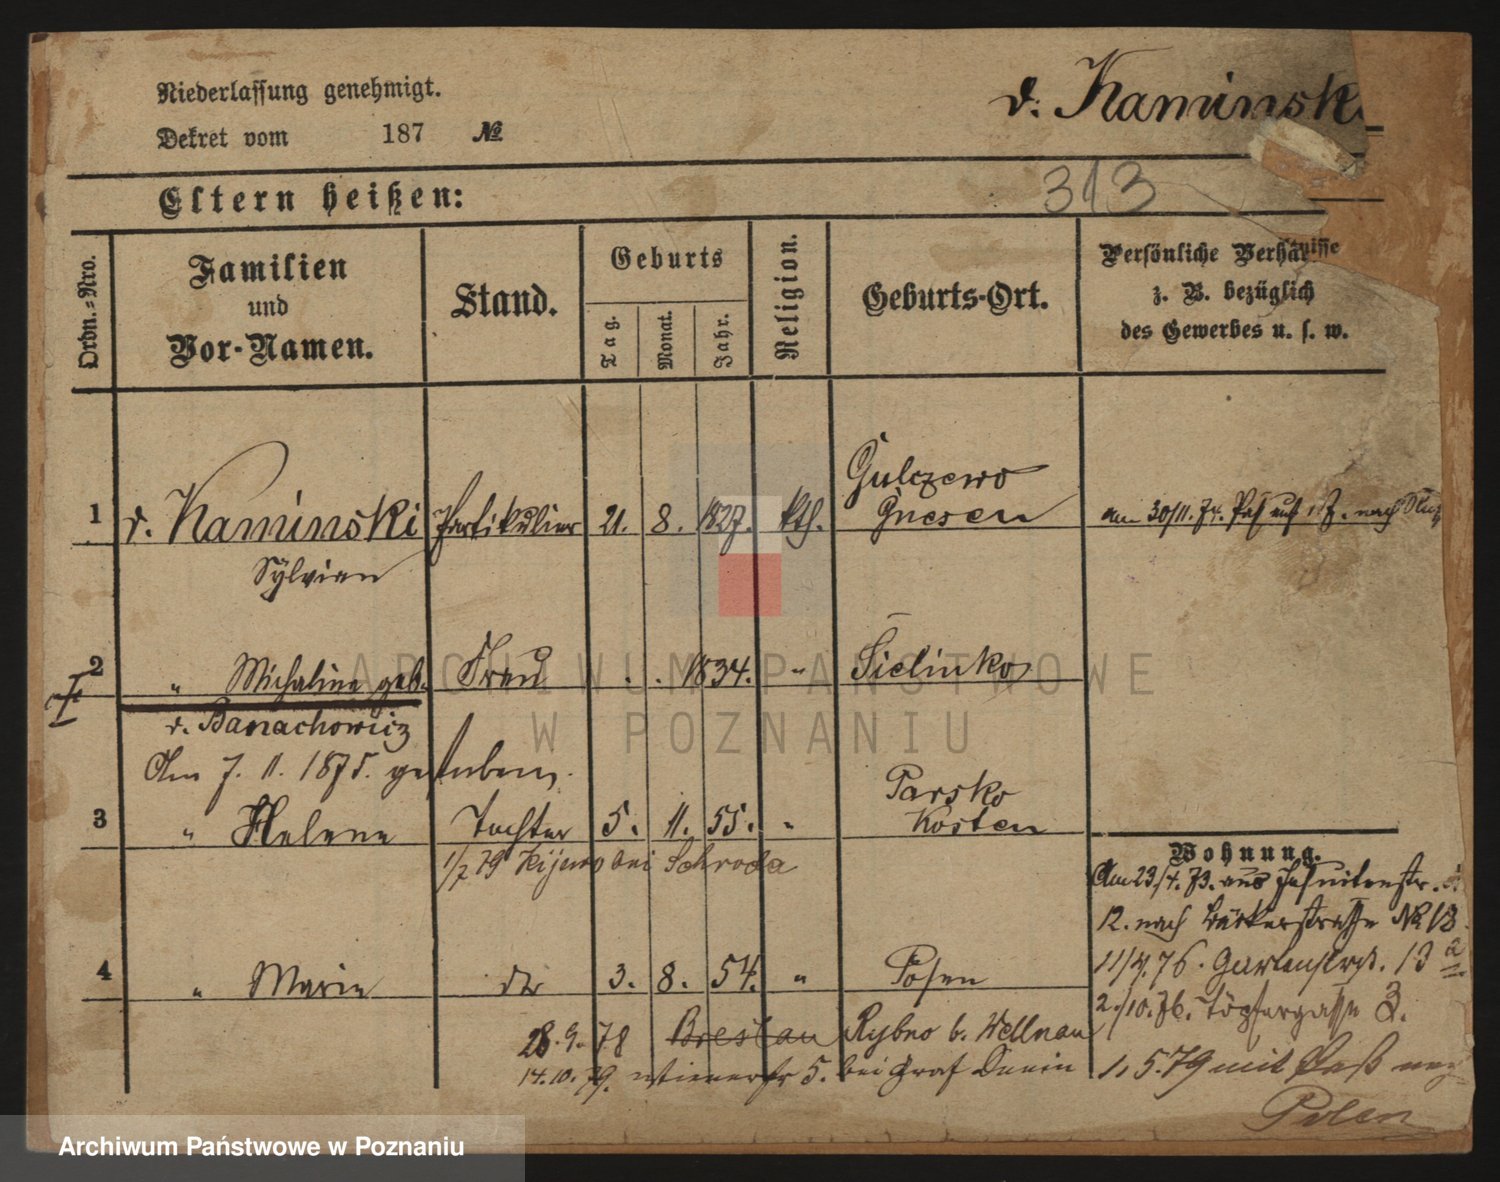 Niederlassung genehmigt.
Dekret vom 187 №
v. Kaminski
313
Eltern heißen:
Ordn.-Nro.
Familien
und
Vor-Namen.
Stand.
Geburts
Tag.
Monat.
Jahr.
Religion.
Geburts-Ort.
Persönliche Verhältnisse
z. B. bezüglich
des Gewerbes u. s. w.
1 v. Kaminski Partikulier 21. 8. 1827. kth. Gulczewo Gnesen am 30/11. 74. Paß auf nach
Sylvian
2 " Michaline geb. Frau . . 1834. " Sielinko
v. Banachowicz
Am 7. 11. 1875. gestorben.
3 " Helene Tochter 5. 11. 55. " Parsko Kosten
1/7 79 Kijewo bei Schroda
4 " Marie do 3. 8. 54. " Posen
28. 9. 78 Breslau Rybno b. Wellnau
14.10.79. Wienerstr 5. bei Graf Dunin
Wohnung.
Am 23/4. 73. aus Jesuitenstr.
12. nach Bäckerstraße No 13
11/4. 76. Gartenstrß. 13 a
2/10. 76. Töpfergasse 3.
1, 5. 79 mit Paß nach
Polen
ARCHIWUM PAŃSTWOWE
W POZNANIU
Archiwum Państwowe w Poznaniu